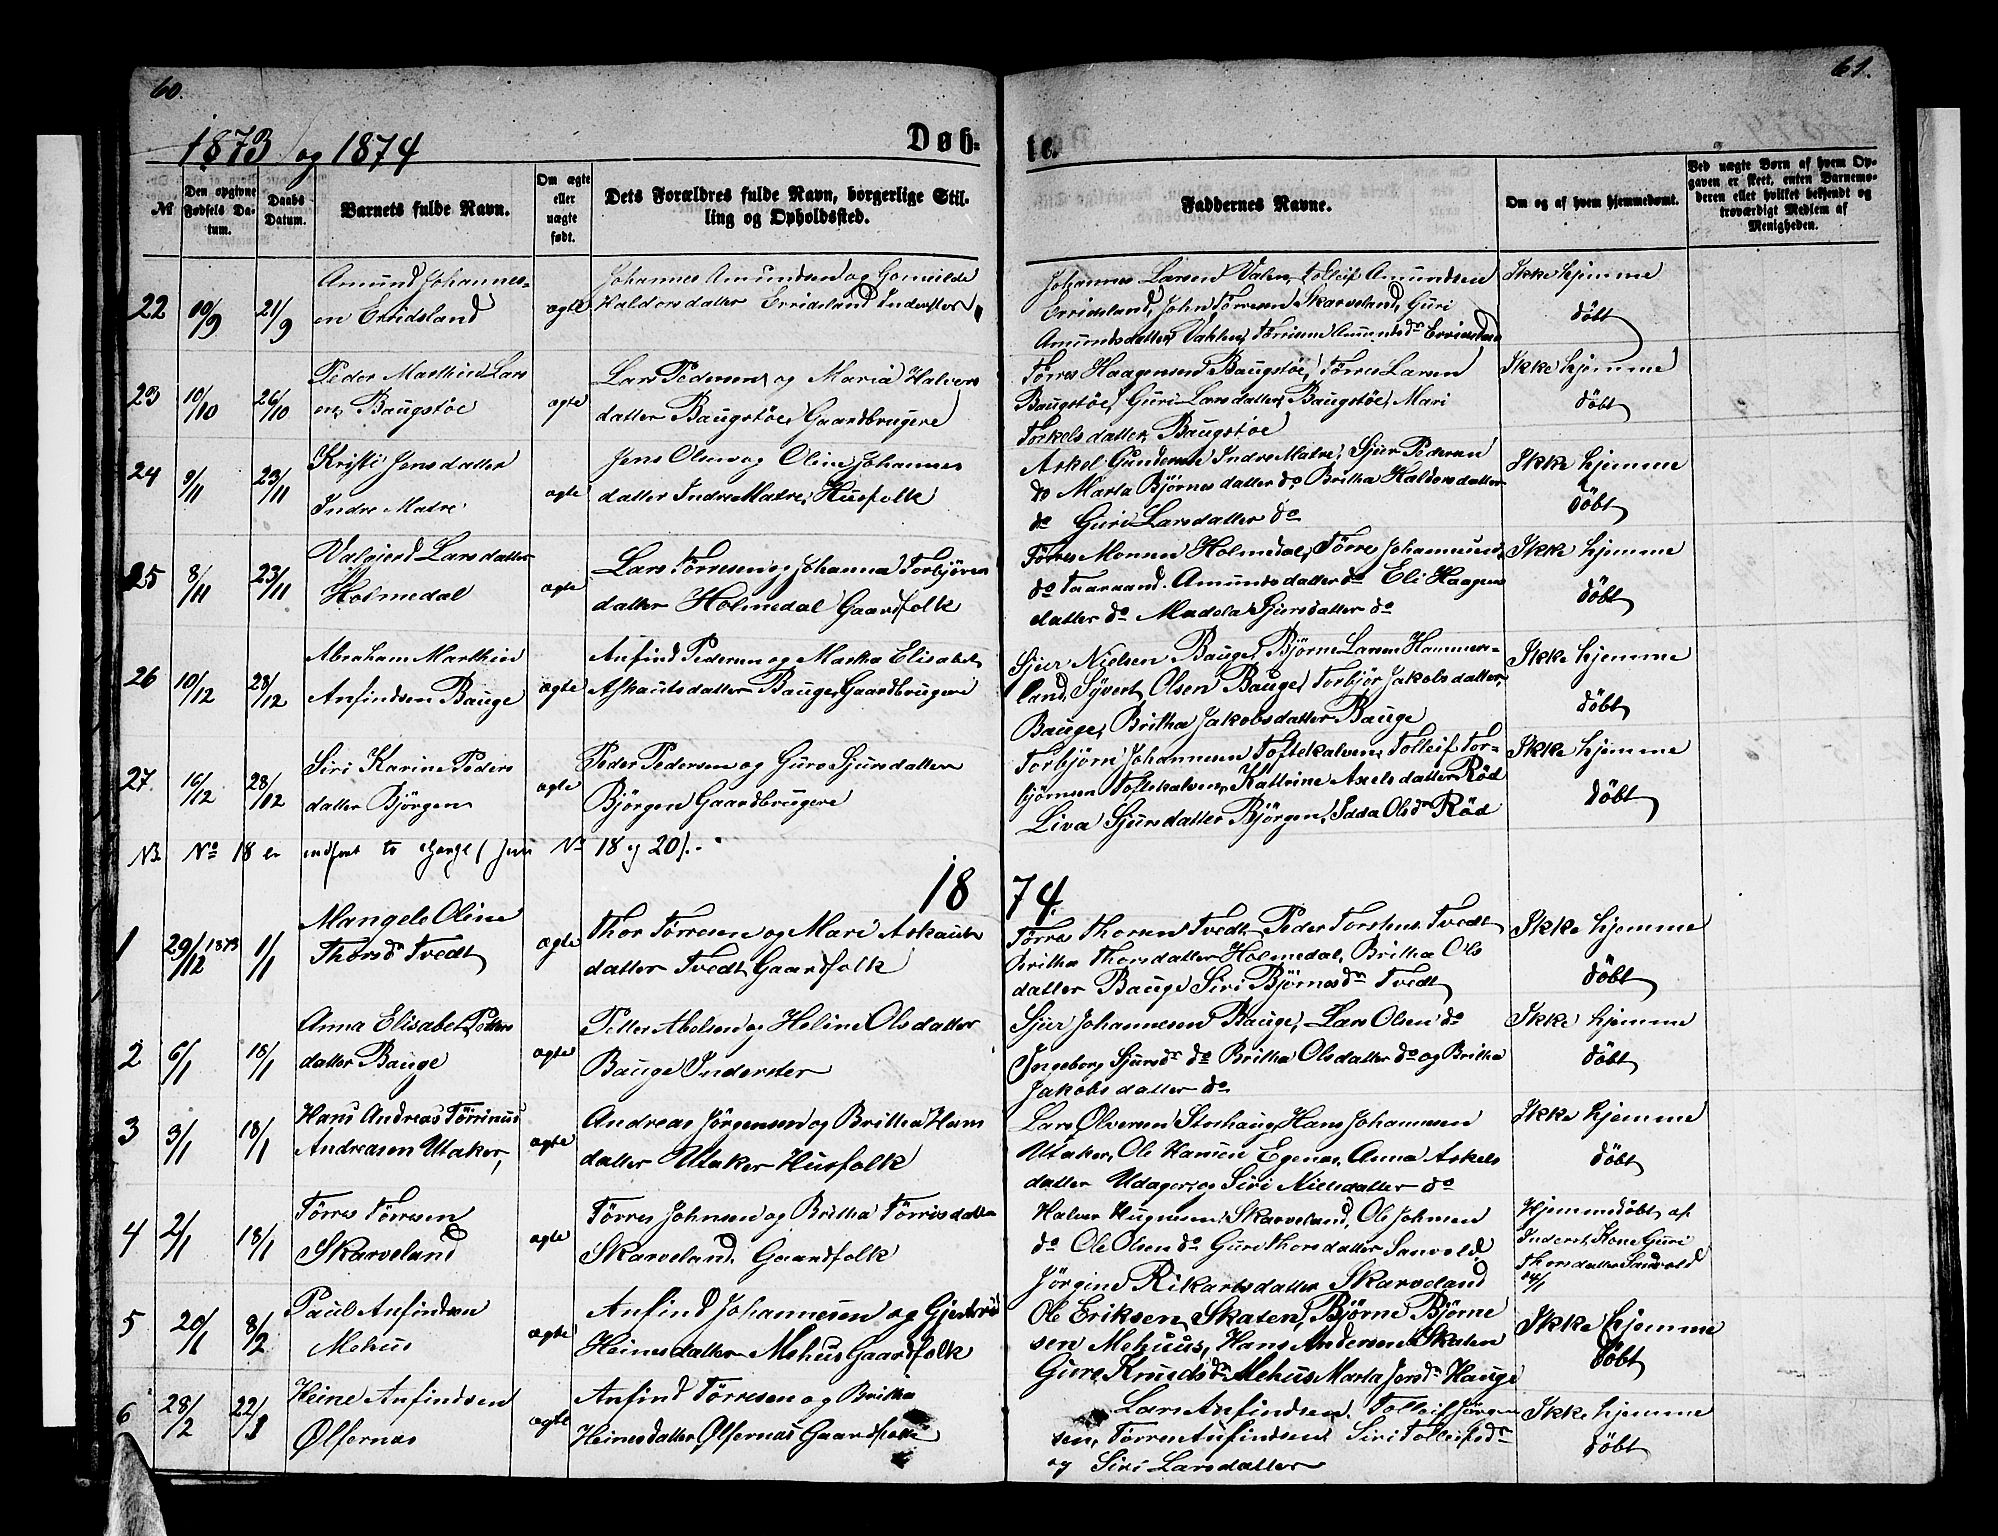 60.
61.
1873 og 1874
Døb-
te.
№
Den opgivne Fødsels Datum.
Daabs Datum.
Barnets fulde Navn.
Om ægte eller uægte født.
Dets Forældres fulde Navn, borgerlige Stilling og Opholdssted.
Faddernes Navne.
Om og af hvem hjemmedøbt.
Ved uægte Børn af hvem Opgaven er skeet, enten Barnemoderen eller hvilket bekjendt og troværdigt Medlem af Menigheden.
22 10/9 21/9
Amund Johannes-
en Erridsland
ægte
Johannes Amundsen og Gomilde
Haldorsdatter Erridsland Inderster
Johannes Larsen Valen, Tolleif Amundsen
Erridsland, John Tørresen Skarveland, Guri
Amundsdatter Vahlen, Amundsdr Erridsland
Ikke hjemme
døbt
23 10/10 26/10
Peder Mathin Lars
en Baugstøe
ægte
Lars Pedersen og Maria Halvors
datter Baugstøe Gaardbrugere
Tørres Haagensen Baugstøe, Tørres Larsen
Baugstøe, Guri Larsdatter Baugstøe, Mari
Torkelsdatter Baugstøe
Ikke hjemme
døbt
24 9/11 23/11
Kristi Jensdatter
Indre Matre
ægte
Jens Olsen og Oline Johannes
datter Indre Matre, Husfolk
Askel Gundersen Indre Matre, Sjur Pedersen
do Marta Bjørnesdatter do, Britha Haldorsdatter
do Guri Larsdatter do
Ikke hjemme
døbt
25 8/11 23/11
Valgjerd Larsdatter
Holmedal
ægte
Lars Tørresen og Johanna Torbjørns
datter Holmedal Gaardfolk
Tørres Monsen Holmedal, Tørres Johannesen
do Taraand. Amundsdatter do Eli Haagens
datter do Madela Sjursdatter do
Ikke hjemme
døbt
26 10/12 28/12
Abraham Marthin
Anfindsen Bauge
ægte
Anfind Pedersen og Martha Elisabet
Askautsdatter Bauge, Gaardbrugere
Sjur Nielsen Bauge, Bjørne Larsen Hammers-
land, Syvert Olsen Bauge, Torbjør Jakobsdatter
Bauge, Britha Jakobsdatter Bauge
Ikke hjemme
døbt
27 16/12 28/12
Siri Karine Peders
datter Bjørgen
ægte
Peder Pedersen og Guro Sjursdatter
Bjørgen Gaardbrugere
Torbjørn Johannesen Toftekalven, Tolleif Tor-
bjørnsen Toftekalven, Kathrine Axelsdatter Rød
Liva Sjursdatter Bjørgen, Idda Olsdr Rød
Ikke hjemme
døbt
NB No 18 er indført to Gange (som No 18 og 20).
18
74.
1 29/12 1873 1/1
Mangele Oline
Thorsdr Tvedt
ægte
Thor Tørresen og Mari Askauts
datter Tvedt Gaardfolk
Tørres Thorsen Tvedt, Peder Torstens. Tvedt
Britha Thorsdatter Holmedal, Britha Ols
datter Bauge Siri Bjørnesdr Tvedt
Ikke hjemme
døbt
2 6/1 18/1
Anna Elisabet Petters
datter Bauge
ægte
Petter Abelsen og Heline Olsdatter
Bauge Inderster
Sjur Johannesen Bauge, Lars Olsen do
Ingeborg Sjursdr do Britha Olsdatter do og Britha
Jakobsdatter do
Ikke hjemme
døbt
3 3/1 18/1
Hans Andreas Tørrinus
Andreasen Utaker,
ægte
Andreas Jørgensen og Britha Hans
datter Utaker Husfolk
Lars Ølversen Storhaug Hans Johannesen
Utaker, Ole Hansen Egenes, Anna Askels
datter Udager, og Siri Nielsdatter do
Ikke hjemme
døbt
4 2/1 18/1
Tørres Tørresen
Skarveland
ægte
Tørres Johnsen og Britha Tørrisdatter
Skarveland. Gaardfolk
Halvor Skarveland, Ole Johnsen
do Ole Olsen do Guri Thorsdatter Sanvold,
Jørgine Rikartsdatter Skarveland
Hjemmedøbt af
Inderst Kone Guri
Thorsdatter Sandvold
5 20/1 8/2
Paul Anfindsen
Mehus
ægte
Anfind Johannesen og Gjertrud
Heinesdatter Mehus Gaardfolk
Ole Eriksen Skaten, Bjørne Bjørne
sen Mehuus, Hans Andersen Skaten
Guro Knudsdr Mehus Marta Jensdr Hauge
Ikke hjemme
døbt
6 28/2 22/3
Heine Anfindsen
Ølfernæs
ægte
Anfind Tørresen og Britha
Heinesdatter Ølfernæs Gaardfolk
Lars Anfindsen, Tolleif Jørgen
sen, Tørres Anfindsen, Siri Tolleifsdr
og Siri Larsdatter
Ikke hjemme
døbt